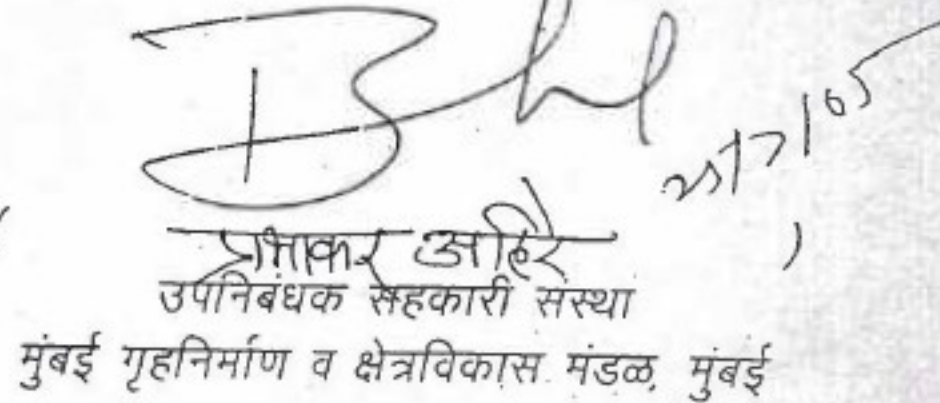 ( प्रभाकर अहिरे )
उपनिबंधक सहकारी संस्था
मुंबई गृहनिर्माण व क्षेत्रविकास मंडळ, मुंबई